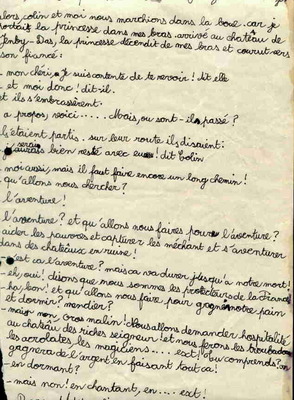 alors, colin et moi nous marchions dans la boue. car je
portait la princesse dans mes bras. arrivé au chateau de
la princesse décendit de mes bras et courut vers
son fiancé:
- mon chéri, je suis contente de te revoir! dit elle
- et moi donc! dit-il.
et ils s'embrassèrent.
- a propos, voici...... Mais, ou sont-ils passé?
ils étaient partis. sur leur route ils disaient:
je serais bien resté avec eux! dit Colin
- moi aussi, mais il faut faire encore un long chemin!
- qu'allons nous chercher?
- l'aventure!
- l'aventure? et qu'allons nous faires pour l'aventure?
aider les pauvres et capturer les méchant et s'aventurer
dans des chateaux en ruine!
- c'est ca l'aventure? mais ca va durer jusqu'a notre mort!
- eh, oui! disons que nous sommes les protecteurs de la France
- ha, bon! et qu'allons nous faire, pour gagner notre pain
et dormir? mendier?
- mais non, gros malin! Nous allons demander hospitalité
au château des riches seigneur! et nous ferons les troubadours
les acrobates, les magiciens.... ext! tu comprends? on
gagnera de l'argent en faisant tout ca!
- en dormant?
- mais non! en chantant, en.... ext!